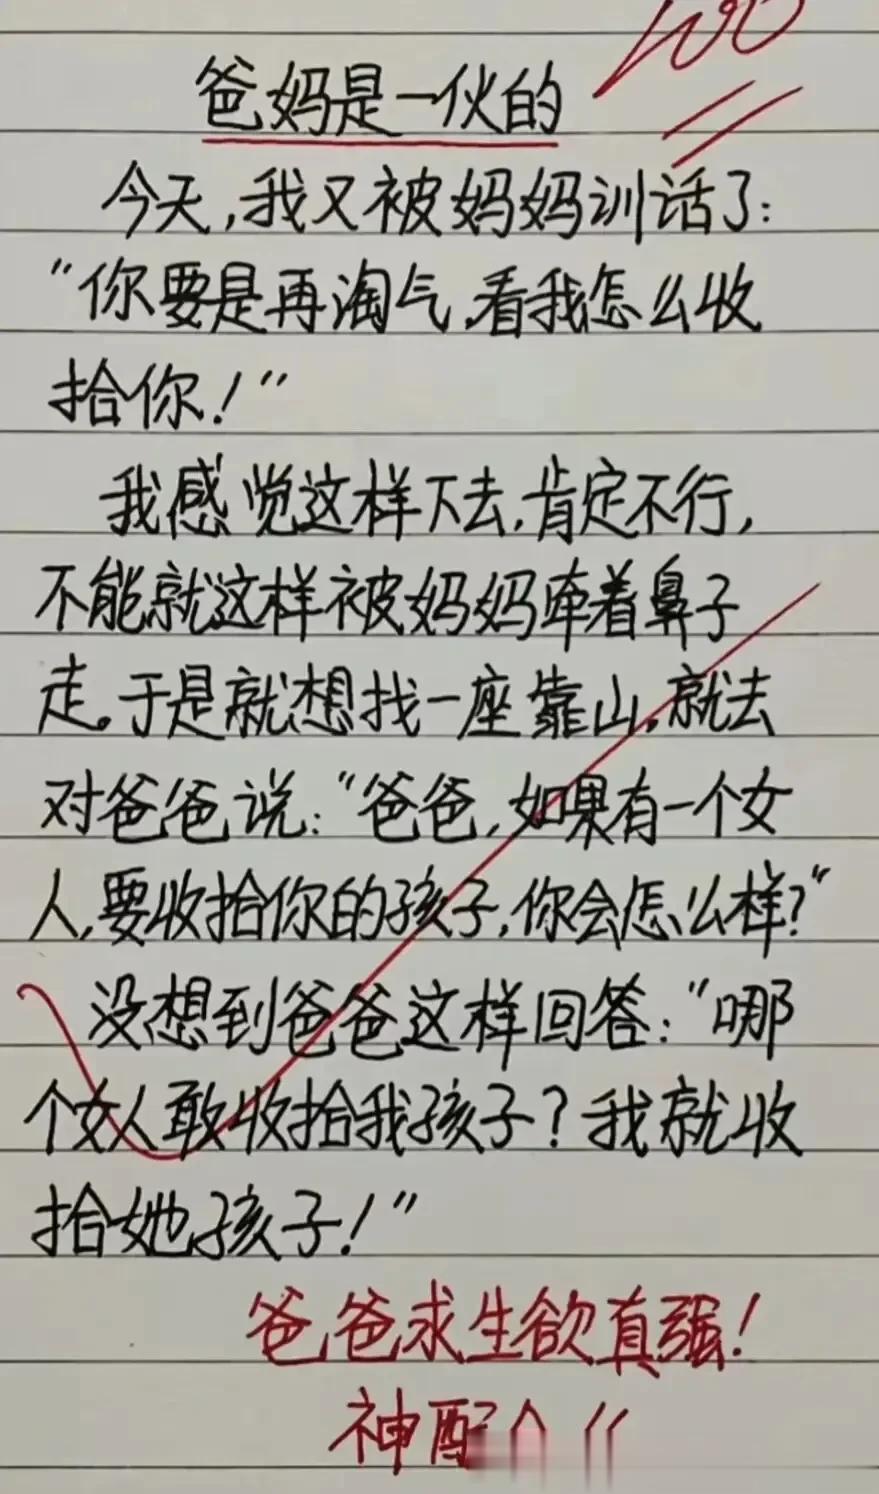 100
爸妈是一伙的
今天,我又被妈妈训话了:
"你要是再淘气,看我怎么收
拾你!"
我感觉这样下去,肯定不行,
不能就这样被妈妈牵着鼻子
走。于是就想找一座靠山,就去
对爸爸说:"爸爸,如果有一个女
人,要收拾你的孩子,你会怎么样?"
没想到爸爸这样回答:"哪
个女人敢收拾我孩子?我就收
拾她孩子!"
爸爸求生欲真强!
神配